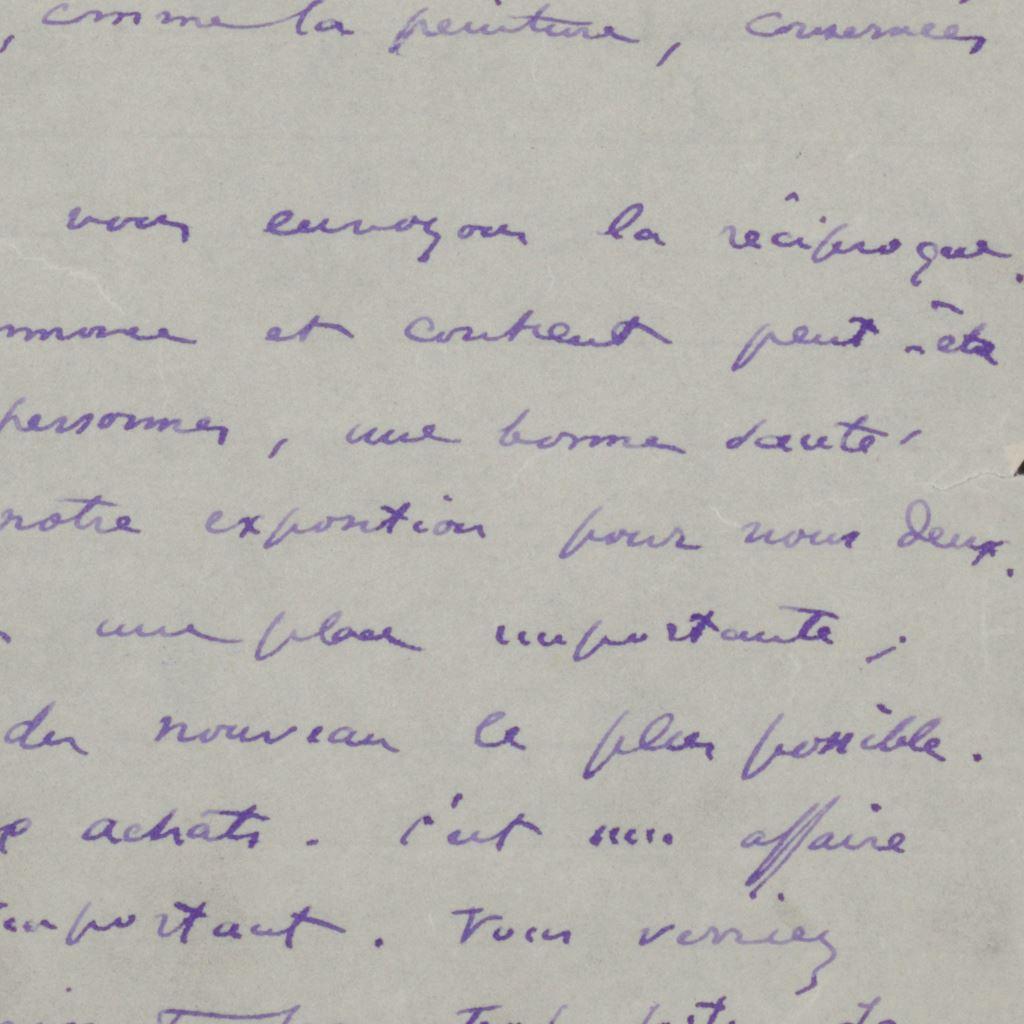 , comme la peinture, conservées
vous envoyons la réciproque.
et contient peut-être
personnes, une bonne santé
notre exposition pour nous deux.
une place importante;
du nouveau le plus possible.
achats. c'est une affaire
important. Vous verriez